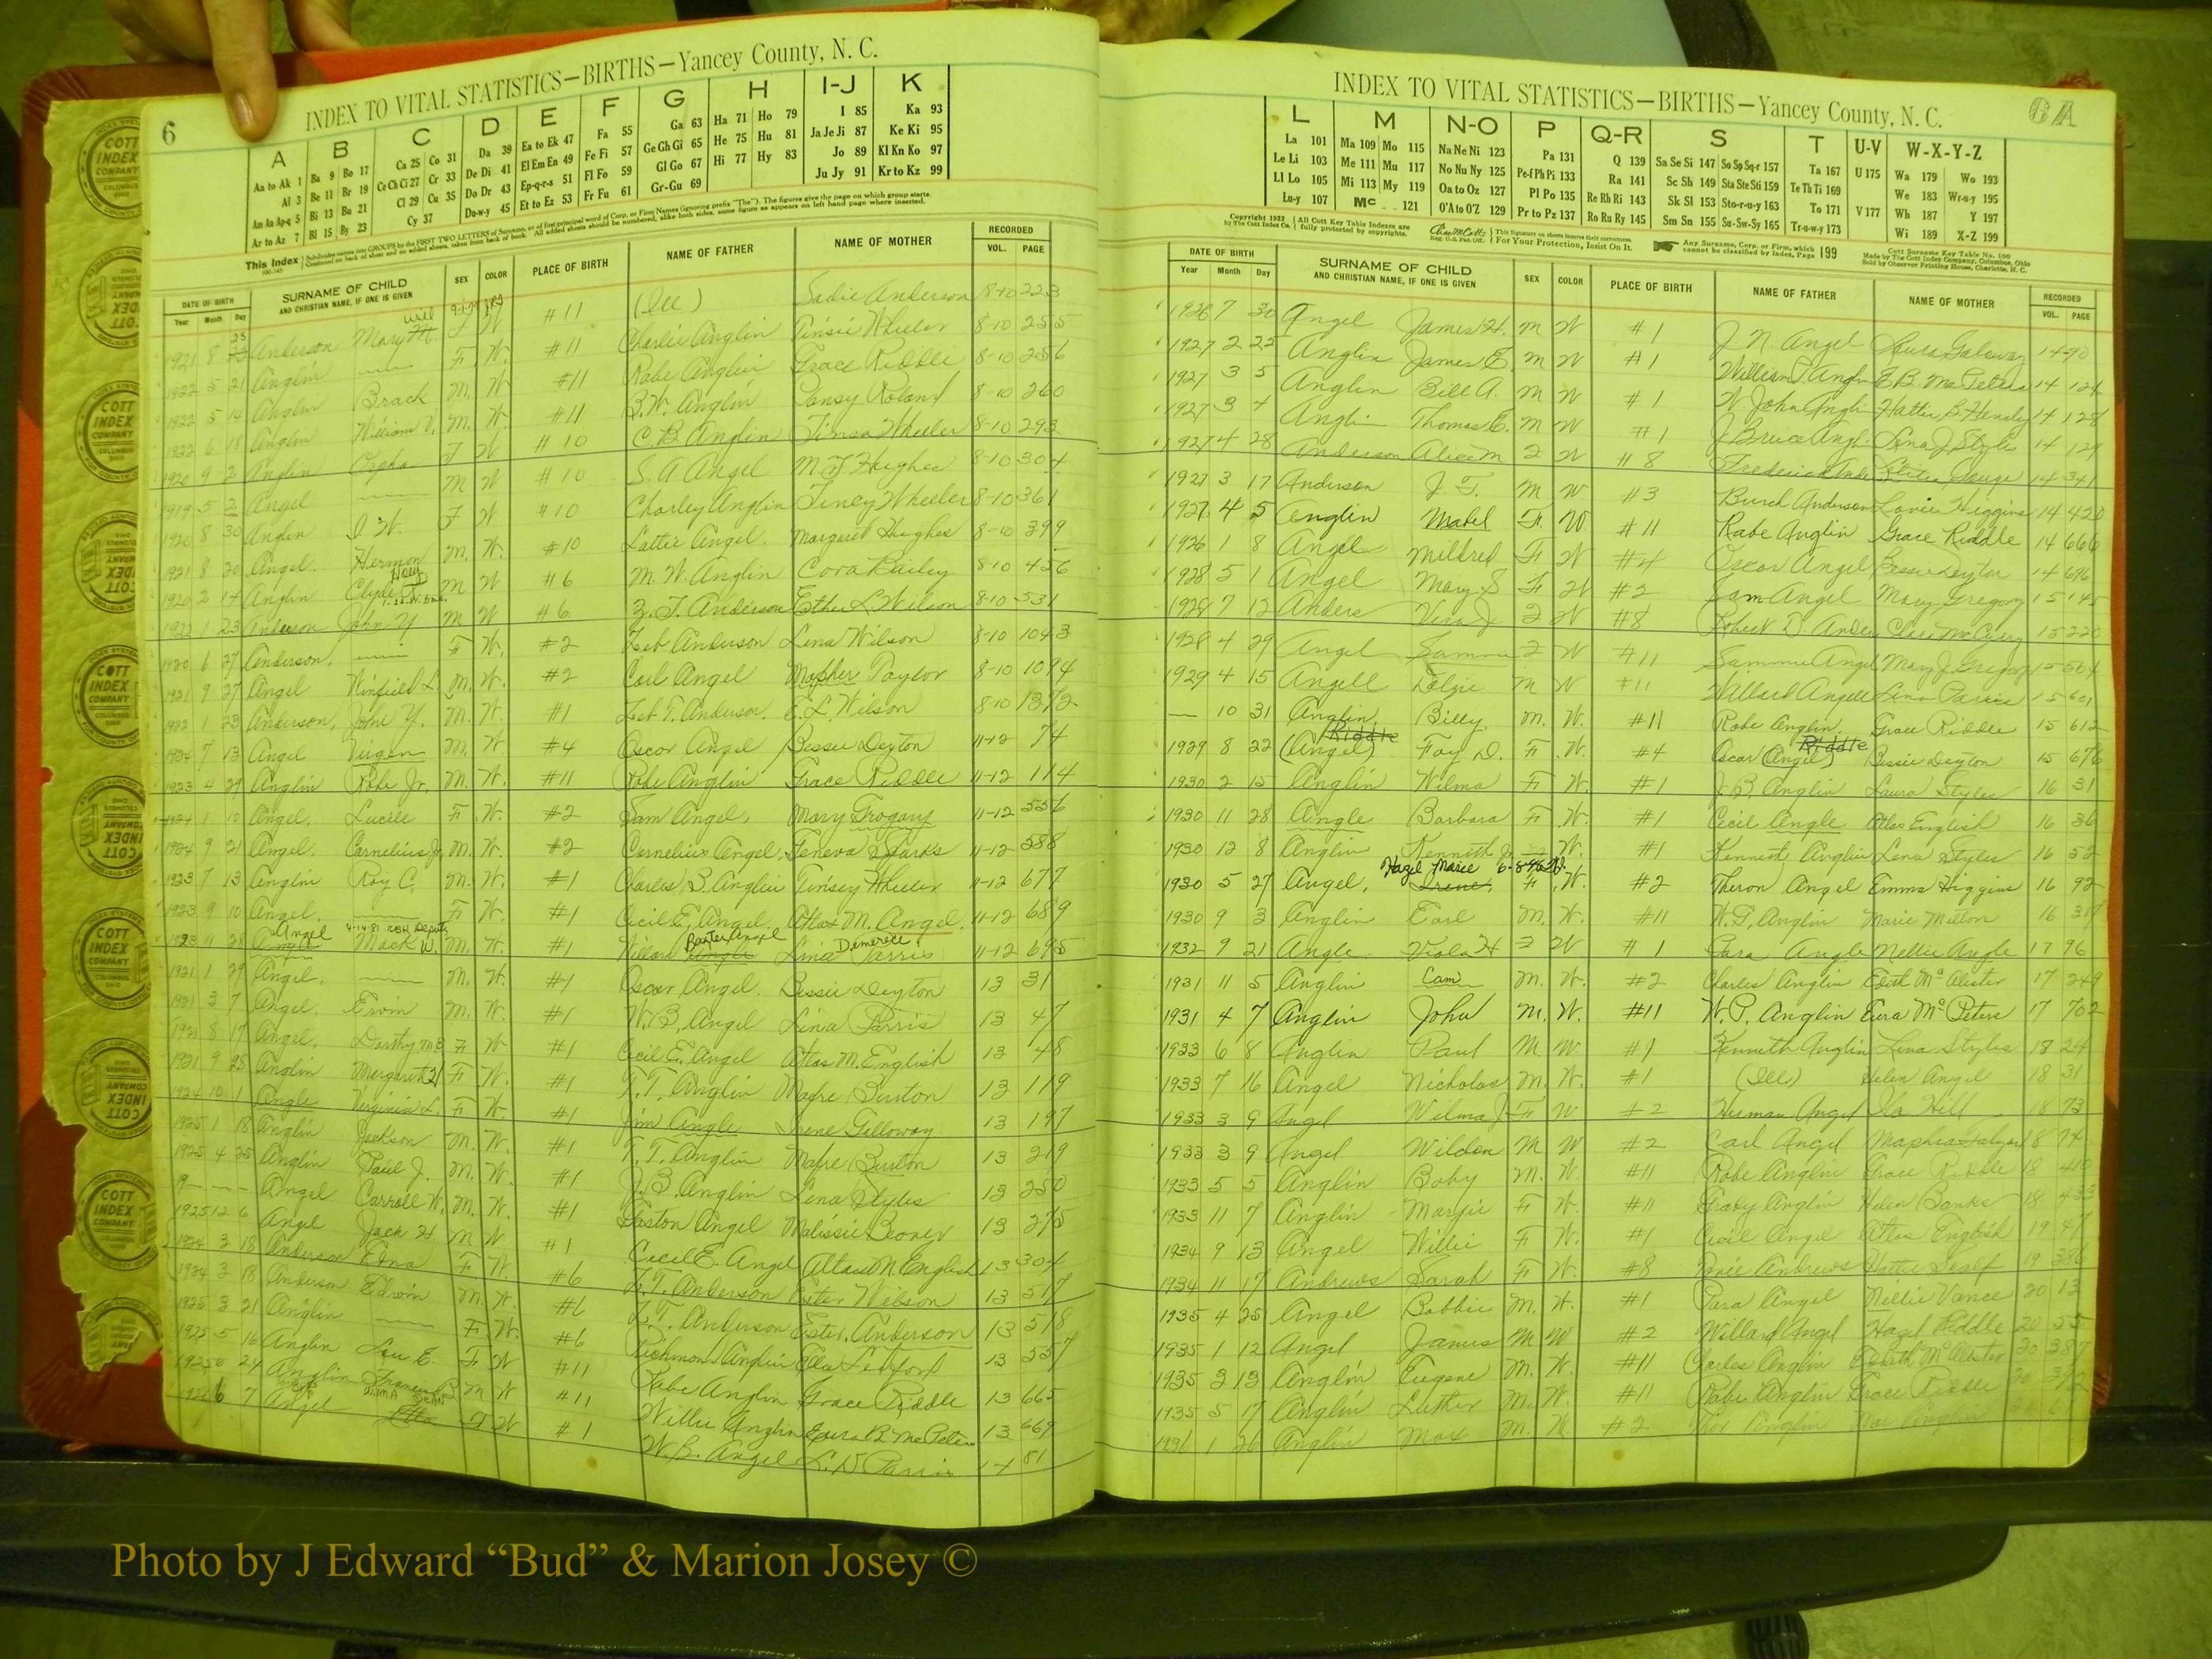 6
INDEX TO VITAL STATISTICS—BIRTHS—Yancey County, N. C.
A B C D E F G H I-J K
Aa to Ak 1 Ba 9 Bo 17 Ca 25 Co 31 Da 39 Ea to Ek 47 Fa 55 Ga 63 Ha 71 Ho 79 I 85 Ka 93
Al 3 Be 11 Br 19 Ce Ch Ci 27 Cr 33 De Di 41 El Em En 49 Fe Fi 57 Ge Gh Gi 65 He 75 Hu 81 Ja Je Ji 87 Ke Ki 95
Am An Ap-q 5 Bi 13 Bu 21 Cl 29 Cu 35 Do Dr 43 Ep-q-r-s 51 Fl Fo 59 Gl Go 67 Hi 77 Hy 83 Jo 89 Kl Kn Ko 97
Ar to Az 7 Bl 15 By 23 Cy 37 Du-w-y 45 Et to Ez 53 Fr Fu 61 Gr-Gu 69 Ju Jy 91 Kr to Kz 99
This Index
DATE OF BIRTH SURNAME OF CHILD SEX COLOR PLACE OF BIRTH NAME OF FATHER NAME OF MOTHER RECORDED
Year Month Day AND CHRISTIAN NAME, IF ONE IS GIVEN VOL. PAGE
1921 8 25 Anderson Mary Will F W #11 (Ill) Sadie Anderson 8-10 223
1922 5 21 Anglin —— F. W. #11 Charlie Anglin Tinsie Wheeler 8-10 255
1922 5 14 Anglin Brack M. W. #11 Rabe Anglin Grace Riddle 8-10 256
1922 6 18 Anglin William V. M. W. #11 B.W. Anglin Pansy Roland 8-10 260
1920 9 2 Anglin Orpha F W #10 C B Anglin Tinsa Wheeler 8-10 293
1919 5 2 Angel —— M W #10 S. A Angel M J Hughes 8-10 304
1920 8 30 Anglin D. W. F W #10 Charley Anglin Tincy Wheeler 8-10 361
1921 8 20 Angel Hermon M. W. #10 Lattie Angel. Margaret Hughes 8-10 399
1920 2 14 Anglin Clyde M W #6 M. W. Anglin Cora Bailey 8-10 456
1922 1 23 Anderson John Y M W #6 Z. T. Anderson Esther L Wilson 8-10 531
1920 6 27 Anderson. —— F W. #2 Zeb Anderson Lena Wilson 8-10 1043
1921 9 27 Angel Winfield L. M. W. #2 Carl Angel Mapher Taylor 8-10 1094
1922 1 23 Anderson, John Y. M. W. #1 Zeb T. Anderson. E. L. Wilson 8-10 1372
1924 7 13 Angel Virgen M. W. #4 Oscar Angel Bessie Deyton 11-12 74
1923 4 29 Anglin Robe Jr. M. W. #11 Robe Anglin Grace Riddle 11-12 114
1924 1 10 Angel. Lucile F W. #2 Sam Angel. Mary Grogany 11-12 556
1924 9 21 Angel. Cornelius Jr. M. W. #2 Cornelius Angel. Geneva Sparks 11-12 588
1923 7 13 Anglin Roy C. M. W. #1 Charles B. Anglin Tinsey Wheeler 11-12 677
1923 9 10 Angel. —— F W. #1 Cecil E. Angel. Atlas M. Angel. 11-12 689
1923 11 28 Angel Mack W. M. W. #1 Willard Baxter Angel Lina Parris 11-12 695
1921 1 29 Angel. —— M. W. #1 Oscar Angel. Bessie Deyton 13 31
1921 3 7 Angel. Ervin M. W. #1 W. B. Angel Lina Parris 13 47
8 17 Angel. Dorthy F W #1 Cecil E. Angel Atlas M. English 13 48
1921 9 28 Anglin Margaret F W. #1 T. T. Anglin Burton 13 119
1924 10 1 Angle Virginia L. F W. #1 Jim Angle Irene Galloway 13 197
1925 1 18 Anglin Jackson M. W. #1 T. T. Anglin Burton 13 219
1925 4 25 Anglin Paul J. M. W. #1 J. B. Anglin Lena Styles 13 250
19— — — Angel Carroll W. M. W. #1 Gaston Angel 13 275
1925 12 6 Angel Jack H. M W #1 Cecil E. Angel Atlas M. English 13 304
1924 3 18 Anderson Edna F W. #6 Z. T. Anderson Ester Wilson 13 517
1924 3 18 Anderson Edwin M. W. #6 Z. T. Anderson Ester. Anderson 13 518
1925 3 21 Anglin —— F W. #6 Anglin Ledford 13 557
1925 5 16 Anglin Lou E. F W #11 Rabe Anglin Grace Riddle 13 665
24 Anglin M W #11 Willie Anglin 13 669
6 7 Angel F W #1 W. B. Angel L. D Parris 14 81
6A
INDEX TO VITAL STATISTICS—BIRTHS—Yancey County, N. C.
L M N-O P Q-R S T U-V W-X-Y-Z
La 101 Ma 109 Mo 115 Na Ne Ni 123 Pa 131 Q 139 Sa Se Si 147 So Sp Sq-r 157 Ta 167 U 175 Wa 179 Wo 193
Le Li 103 Me 111 Mu 117 No Nu Ny 125 Pe-f Ph Pi 133 Ra 141 Sc Sh 149 Sta Ste Sti 159 Te Th Ti 169 We 183 Wr-u-y 195
Ll Lo 105 Mi 113 My 119 Oa to Oz 127 Pl Po 135 Re Rh Ri 143 Sk Sl 153 Sto-r-u-y 163 To 171 V 177 Wh 187 Y 197
Lu-y 107 Mc 121 O'A to O'Z 129 Pr to Pz 137 Ro Ru Ry 145 Sm Sn 155 Su-Sw-Sy 165 Tr-u-w-y 173 Wi 189 X-Z 199
Copyright 1932 by The Cott Index Co. All Cott Key Table Indexes are fully protected by copyrights. This signature on sheets insures their correctness. For Your Protection, Insist On It. Any Surname, Corp. or Firm, which cannot be classified by Index, Page 199 Cott Surname Key Table No. 100 Made by The Cott Index Company, Columbus, Ohio Sold by Observer Printing House, Charlotte, N. C.
DATE OF BIRTH SURNAME OF CHILD SEX COLOR PLACE OF BIRTH NAME OF FATHER NAME OF MOTHER RECORDED
Year Month Day AND CHRISTIAN NAME, IF ONE IS GIVEN VOL. PAGE
1926 7 30 Angel James H. M W #1 J N Angel Laura Galoway 14-90
1927 2 22 Anglin James E. M W #1 William P. Anglin E. B. McPeters 14 124
1927 3 5 Anglin Bill A. M W #1 W. John Anglin Hattie B. Hensley 14 128
1927 3 4 Anglin Thomas C. M W #1 J Bruce Angl. Lena J Styles 14 129
1927 4 28 Anderson Alice M F W #8 Frederick Gouge 14 341
1927 3 17 Anderson J. T. M W #3 Burch Anderson Lovie Higgins 14 420
1927 4 5 Anglin Mabel F. W #11 Rabe Anglin Grace Riddle 14 666
1926 1 8 Angel Mildred F W #4 Oscar Angel Bessie Deyton 14 696
1928 5 1 Angel Mary S F W #2 Sam Angel Mary Gregory 15 145
1928 7 12 Anders Vera J F W #8 Robert D Anders 15 220
1928 4 29 Angel Sammie F W #11 Sammie Angel Mary J. Gregory 15 504
1929 4 15 Angell Dolzie M W #11 Willard Angell Lena Parris 15 601
— 10 31 Anglin. Billy. M. W. #11 Robe Anglin. Grace Riddle 15 612
1929 8 22 (Angel) Riddle Fay D. F. W. #4 Oscar (Angel) Riddle Bessie Deyton 15 676
1930 2 15 Anglin Wilma F W. #1 J. B. Anglin Laura Styles 16 31
1930 11 28 Angle Barbara F W. #1 Cecil Angle Atlas English 16 36
1930 12 8 Anglin Kenneth J W. #1 Kenneth Anglin Lena Styles 16 52
1930 5 27 Angel. Hazel Marie Irene. F. W. #2 Theron Angel Emma Higgins 16 92
1930 9 3 Anglin Earl M. W. #11 W. G. Anglin Marie Milton 16 317
1932 9 21 Angle Viola H F W #1 Para Angle Nellie Angle 17 96
1931 11 5 Anglin Cam M. W. #2 Charles Anglin Edith McAlister 17 249
1931 4 7 Anglin John M. W. #11 W. P. Anglin Eura McPeters 17 702
1933 6 8 Anglin Paul M W #1 Kenneth Anglin Lena Styles 18 24
1933 7 16 Angel Nicholas M. W. #1 (Ill) Helen Angel 18 31
1933 3 9 Angel Wilma J F W #2 Herman Angel Ila Hill 18 73
1933 3 9 Angel Wildon M W #2 Carl Angel 18 74
1933 5 5 Anglin Boby M. W. #11 Robe Anglin Grace Riddle 18 410
1933 11 7 Anglin Marjie F W. #11 Grady Anglin Helen Banks 18 433
1934 9 13 Angel Willie F W. #1 Cecil Angel Atlas English 19 47
1934 11 17 Andrews Sarah F W. #8 Andrews Hattie 19 386
1935 4 25 Angel Bobbie M. W. #1 Para Angel Nellie Vance 20 13
1935 1 12 Angel James M W #2 Willard Angel Hazel Riddle 20 55
1935 3 13 Anglin Eugene M. W. #11 Charles Anglin Edith McAlister 20 387
1935 5 17 Anglin Luther M. W. #11 Robe Anglin Grace Riddle 20 392
1936 1 26 Anglin Max M. W. #2 Anglin
Photo by J Edward “Bud” & Marion Josey ©
COTT
INDEX
COMPANY
COLUMBUS
OHIO